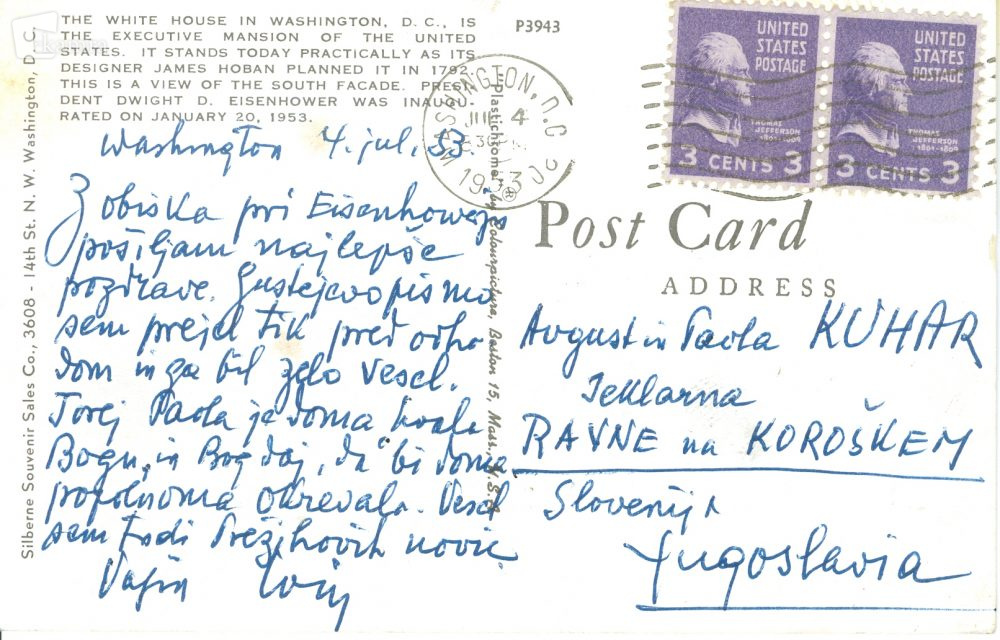 THE WHITE HOUSE IN WASHINGTON, D. C., IS
THE EXECUTIVE MANSION OF THE UNITED
STATES. IT STANDS TODAY PRACTICALLY AS ITS
DESIGNER JAMES HOBAN PLANNED IT IN 1792.
THIS IS A VIEW OF THE SOUTH FACADE. PRESI-
DENT DWIGHT D. EISENHOWER WAS INAUGU-
RATED ON JANUARY 20, 1953.
P3943
Silberne Souvenir Sales Co., 3608 - 14th St. N. W. Washington, D. C.
"Plastichrome" by Colourpicture, Boston 15, Mass., U.S.A.
WASHINGTON, D.C.
JUL 4
1953
UNITED
STATES
POSTAGE
THOMAS
JEFFERSON
1801-1809
3 CENTS 3
UNITED
STATES
POSTAGE
THOMAS
JEFFERSON
1801-1809
3 CENTS 3
Post Card
ADDRESS
Washington 4. jul. 53.
Z obiska pri Eisenhowerju
pošiljam najlepše
pozdrave. Gusteljevo pismo
sem prejel tik pred odho
dom in ga bil zelo vesel.
Torej Pavla je doma hvala
Bogu, in Bog daj, da bi doma
popolnoma okrevala. Vesel
sem tudi Prežihovih novic
Vaš
Avgust in Pavla KUHAR
Jeklarna
RAVNE na KOROŠKEM
Slovenija
Jugoslavia